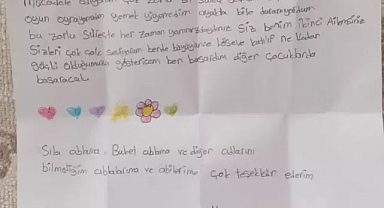 oyun oynayamadım yemek yiyemedim ayakta bile duramıyordum
bu zorlu süreçte her zaman yanımızdaydınız siz benim ikinci Ailemsiniz
Sizleri çok çok seviyorum bende büyüyünce Lösev'e katılıp ne kadar
güçlü olduğumuzu göstericem ben başardım diğer çocuklarda
başaracak
Sıla ablama, Buket ablama ve diğer adlarını
bilmediğim ablalarıma ve abilerime çok teşekkür ederim